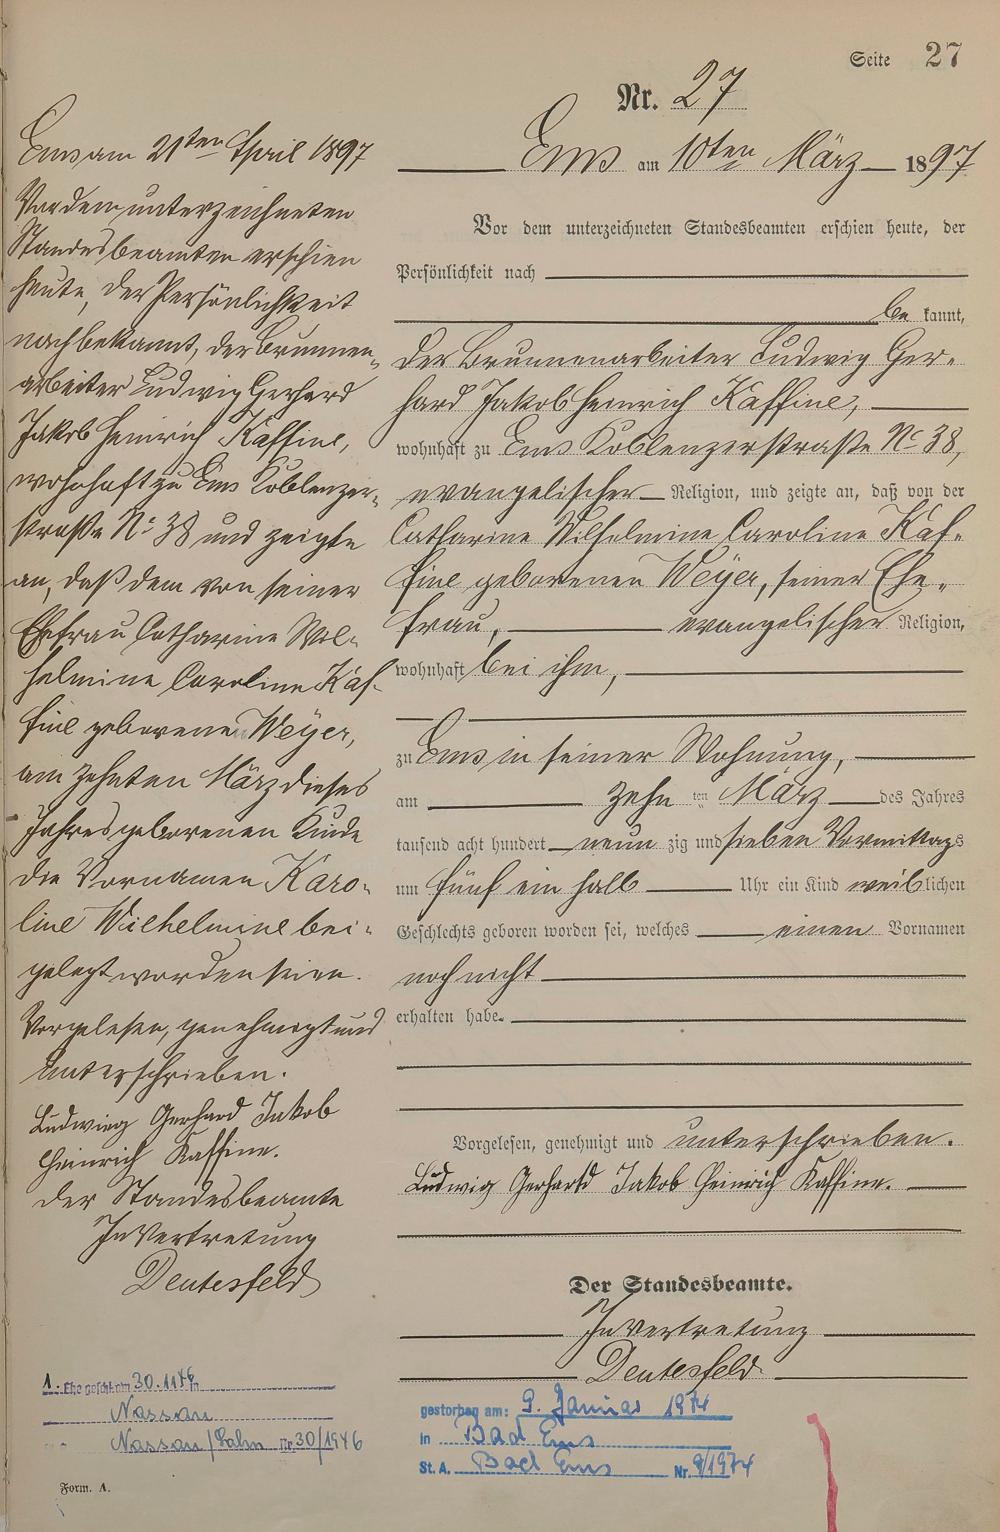 Seite 27
Nr. 27
Ems am 10ten März 1897
Vor dem unterzeichneten Standesbeamten erschien heute, der
Persönlichkeit nach
be kannt,
der Brunnenarbeiter Ludwig Ger-
hard Jakob Heinrich Kaffine,
wohnhaft zu Ems Koblenzerstraße No 38,
evangelischer Religion, und zeigte an, daß von der
Catharine Wilhelmine Caroline Kaf-
fine geborenen Weyer, seiner Ehe-
frau, evangelischer Religion,
wohnhaft bei ihm,
zu Ems in seiner Wohnung,
am zehn ten März des Jahres
tausend acht hundert neun zig und sieben Vormittags
um fünf ein halb Uhr ein Kind weiblichen
Geschlechts geboren worden sei, welches einen Vornamen
noch nicht
erhalten habe.
Vorgelesen, genehmigt und unterschrieben.
Ludwig Gerhard Jakob Heinrich Kaffine.
Der Standesbeamte.
In Vertretung
Deutesfeld
gestorben am: 9. Januar 1974
in Bad Ems
St. A. Bad Ems Nr. 9/1974
Ems am 21ten April 1897
Vor dem unterzeichneten
Standesbeamten erschien
heute, der Persönlichkeit
nach bekannt, der Brunnen-
arbeiter Ludwig Gerhard
Jakob Heinrich Kaffine,
wohnhaft zu Ems Koblenzer-
straße No 38 und zeigte
an, daß dem von seiner
Ehefrau Catharine Wil-
helmine Caroline Kaf-
fine geborenen Weyer,
am zehnten März dieses
Jahres geborenen Kinde
die Vornamen Karo-
line Wilhelmine bei-
gelegt worden seien.
Vorgelesen, genehmigt und
unterschrieben.
Ludwig Gerhard Jakob
Heinrich Kaffine.
Der Standesbeamte
In Vertretung
Deutesfeld
1. Ehe geschl. am 30.11.46 in
Nassau
Nassau/Lahn Nr. 30/1946
Form. A.